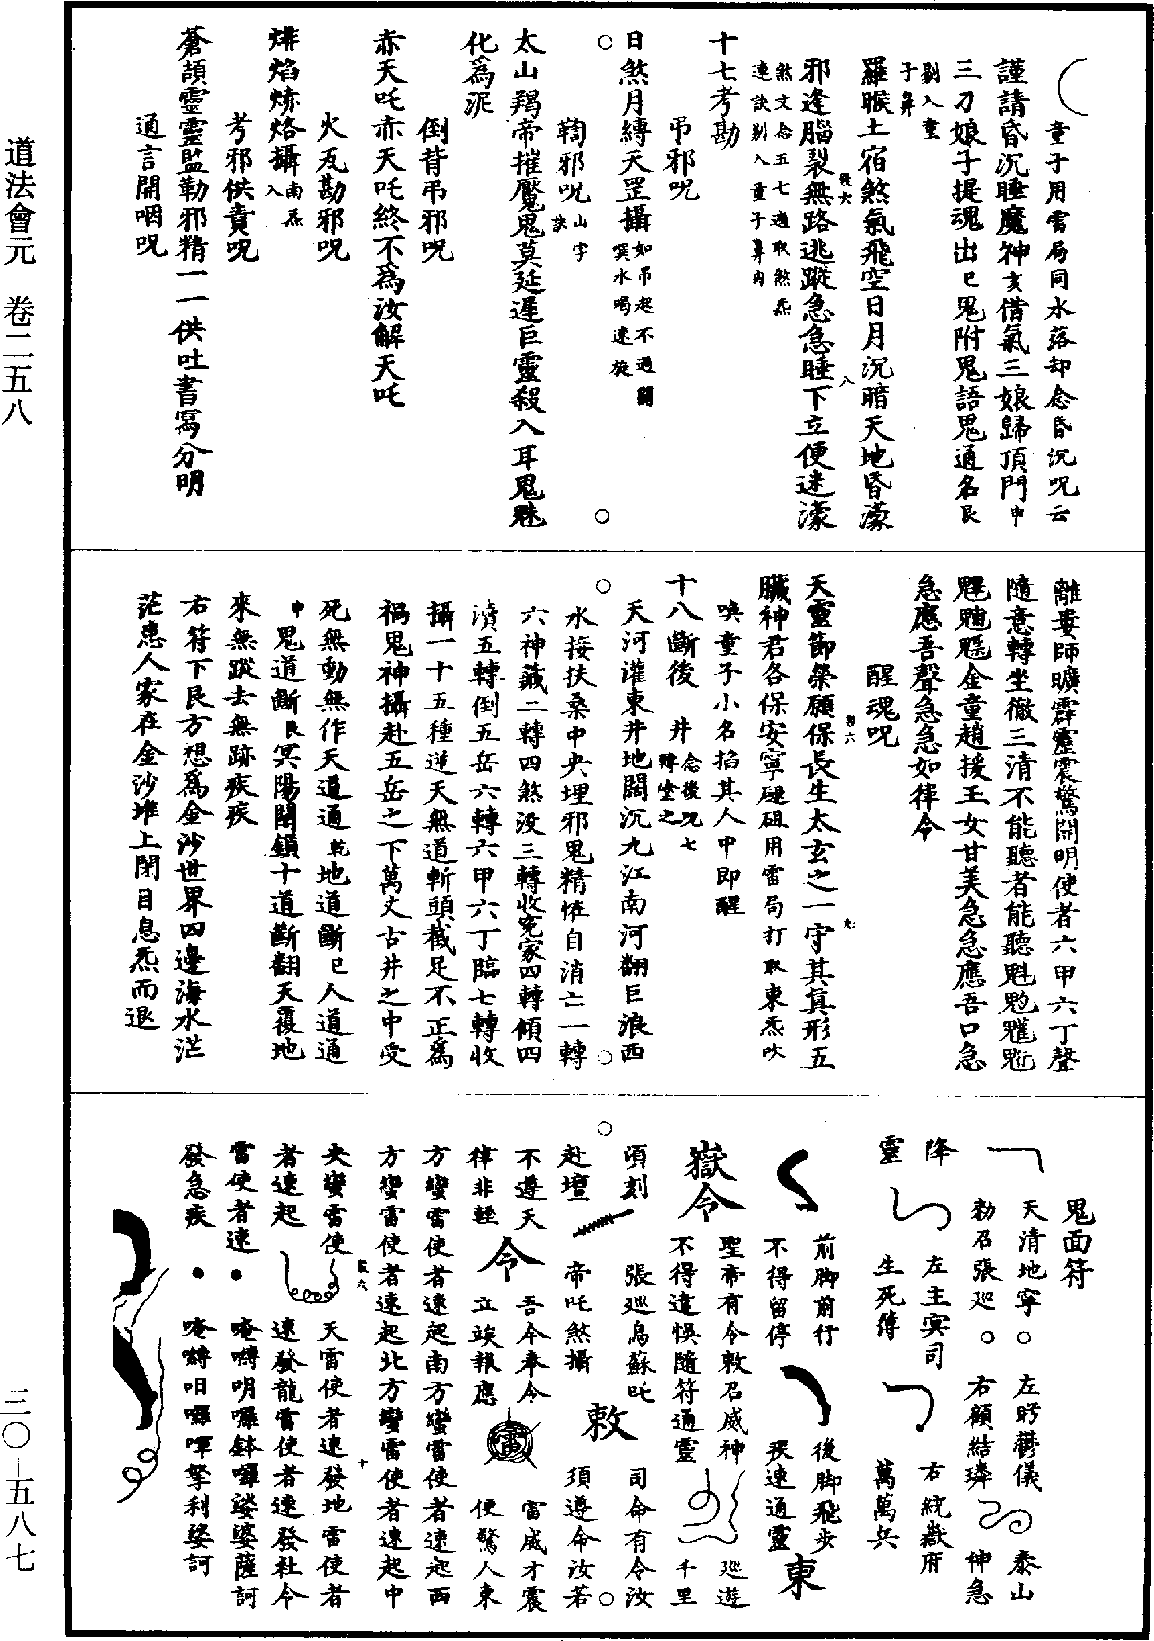 童子用雷局同水落却念昏沉呪云
謹請昏沉睡魔神亥借氣三娘歸頂門申
三刀娘子提魂出巳鬼附鬼語鬼通名艮
剔入童子鼻
羅睺土宿煞氣飛空日月沉暗天地昏濛
邪逢腦裂無路逃蹤急急睡下立便迷濛
煞文念五七遍取煞炁
連訣剔入童子鼻內
十七考勘
弔邪呪
日煞月縛天罡攝如弔起不通關
噀水喝速旋
鞫邪呪山字訣
太山羯帝摧魘鬼莫延遲巨靈殺入耳鬼魅
化為泥
倒背弔邪呪
赤天吒赤天吒終不為汝解天吒
火瓦勘邪呪
烞焰烞烙攝南炁入
考邪供責呪
蒼頡靈靈監勒邪精一一供吐書寫分明
通言開咽呪
離婁師曠霹靂震驚開明使者六甲六丁聲
隨意轉坐徹三清不能聽者能聽
金童趙援玉女甘美急急應吾口急
急應吾聲急急如律令
醒魂呪
天靈節榮願保長生太玄之一守其真形五
臟神君各保安寧用雷局打取東炁吹
喚童子小名掐其人中即醒
十八斷後 井 念後呪七轉塗之
天河灌東井地闊沉九江南河翻巨浪西
水接扶桑中央埋邪鬼精怪自消亡一轉
六神藏二轉四煞沒三轉收冤家四轉傾四
瀆五轉倒五岳六轉六甲六丁臨七轉收
攝一十五種逆天無道斬頭截足不正為
禍鬼神攝赴五岳之下萬丈古井之中受
死無動無作天道通乾地道斷巳人道通
申鬼道斷艮冥陽關鎖十道斷翻天覆地
來無蹤去無跡疾疾
右符下艮方想為金沙世界四邊海水茫
茫患人家在金沙堆上閉目息炁而退
鬼面符
天清地寧 左眄鬱儀 泰山
勑召張巡 右顧結璘 伸急
降 左主冥司 右統嶽府
靈 生死傳 萬萬兵
前脚前行 後脚飛步
不得留停 疾速通靈 東
嶽令 聖帝有令敕召威神 巡遊
不得違悞隨符通靈 千里
頃刻 張巡烏蘇吒 司命有令汝
赴壇 帝吒煞攝 敕 須遵命汝若
不遵天 吾今奉令 雷威才震
律非輕 令 立竢報應 便驚人東
方蠻雷使者速起南方蠻雷使者速起西
方蠻雷使者速起北方蠻雷使者速起中
央蠻雷使 天雷使者速發地雷使者
者速起 速發龍雷使者速發社令
雷使者速 唵嚩明囉鉢囉娑婆薩訶
發急疾 唵嚩呾囉㖷拏利娑訶
道法會元　卷二五八
三〇—五八七